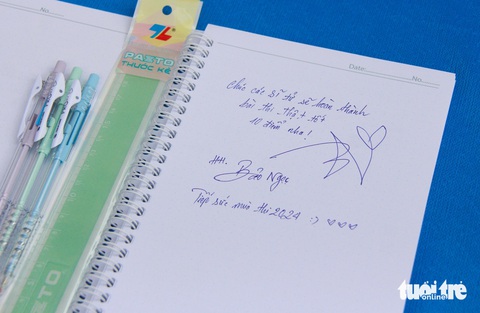 No.
TL
PASTO
THƯỚC KẺ
Date: No.
Chúc các sĩ tử sẽ hoàn thành
bài thi thật tốt
10 điểm nha!
HH. Bảo Ngọc
Tiếp sức mùa thi 2024 :) ♡♡♡
PASTO
tuổi trẻ
online